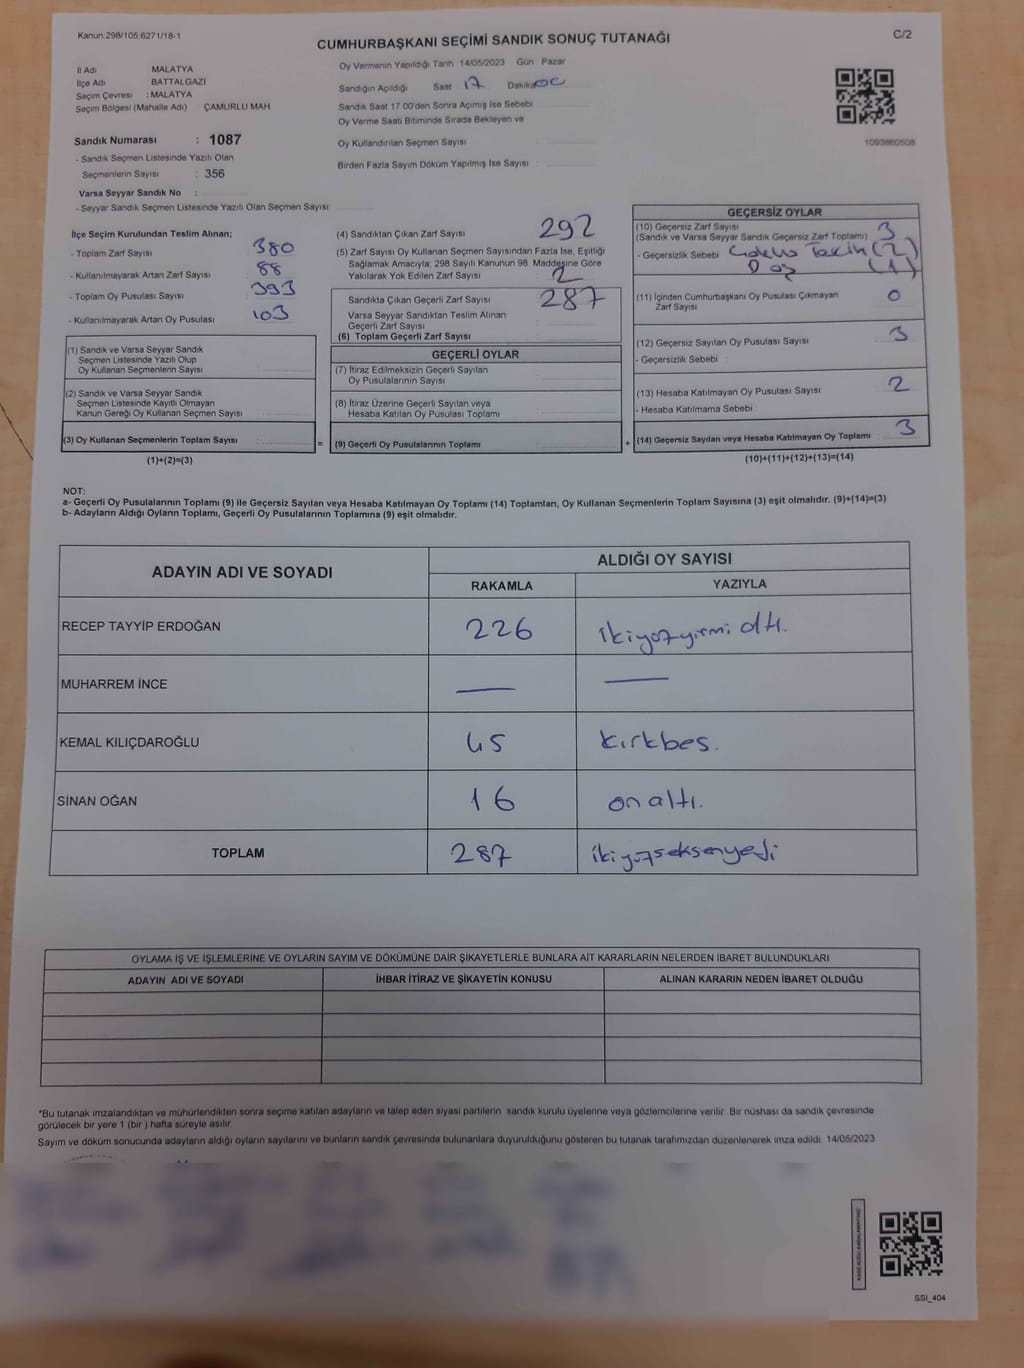 Kanun:298/105,6271/18-1
C/2
CUMHURBAŞKANI SEÇİMİ SANDIK SONUÇ TUTANAĞI
İl Adı MALATYA
İlçe Adı : BATTALGAZİ
Seçim Çevresi : MALATYA
Seçim Bölgesi (Mahalle Adı) ÇAMURLU MAH
Sandık Numarası : 1087
- Sandık Seçmen Listesinde Yazılı Olan
Seçmenlerin Sayısı : 356
Varsa Seyyar Sandık No :
- Seyyar Sandık Seçmen Listesinde Yazılı Olan Seçmen Sayısı
Oy Vermenin Yapıldığı Tarih 14/05/2023 Gün Pazar
Sandığın Açıldığı Saat 17 Dakika 00
Sandık Saat 17:00'den Sonra Açımış İse Sebebi
Oy Verme Saati Bitiminde Sırada Bekleyen ve
Oy Kullandırılan Seçmen Sayısı
Birden Fazla Sayım Döküm Yapılmış İse Sayısı :
1093860508
İlçe Seçim Kurulundan Teslim Alınan;
- Toplam Zarf Sayısı 380
- Kullanılmayarak Artan Zarf Sayısı : 88
- Toplam Oy Pusulası Sayısı 393
- Kullanılmayarak Artan Oy Pusulası 103
(1) Sandık ve Varsa Seyyar Sandık
Seçmen Listesinde Yazılı Olup
Oy Kullanan Seçmenlerin Sayısı
(2) Sandık ve Varsa Seyyar Sandık
Seçmen Listesinde Kayıtlı Olmayan
Kanun Gereği Oy Kullanan Seçmen Sayısı
(3) Oy Kullanan Seçmenlerin Toplam Sayısı :
(1)+(2)=(3)
(4) Sandıktan Çıkan Zarf Sayısı 292
(5) Zarf Sayısı Oy Kullanan Seçmen Sayısından Fazla İse, Eşitliği
Sağlamak Amacıyla; 298 Sayılı Kanunun 98. Maddesine Göre
Yakılarak Yok Edilen Zarf Sayısı 2
Sandıkta Çıkan Geçerli Zarf Sayısı 287
Varsa Seyyar Sandıktan Teslim Alınan
Geçerli Zarf Sayısı
(6) Toplam Geçerli Zarf Sayısı
GEÇERLİ OYLAR
(7) İtiraz Edilmeksizin Geçerli Sayılan
Oy Pusulalarının Sayısı
(8) İtiraz Üzerine Geçerli Sayılan veya
Hesaba Katılan Oy Pusulası Toplamı
= (9) Geçerli Oy Pusulalarının Toplamı
GEÇERSİZ OYLAR
(10) Geçersiz Zarf Sayısı 3
(Sandık ve Varsa Seyyar Sandık Geçersiz Zarf Toplamı)
- Geçersizlik Sebebi (2)
(1)
(11) İçinden Cumhurbaşkanı Oy Pusulası Çıkmayan 0
Zarf Sayısı
(12) Geçersiz Sayılan Oy Pusulası Sayısı 3
- Geçersizlik Sebebi :
(13) Hesaba Katılmayan Oy Pusulası Sayısı 2
- Hesaba Katılmama Sebebi
+ (14) Geçersiz Sayılan veya Hesaba Katılmayan Oy Toplamı : 3
(10)+(11)+(12)+(13)=(14)
NOT:
a- Geçerli Oy Pusulalarının Toplamı (9) ile Geçersiz Sayılan veya Hesaba Katılmayan Oy Toplamı (14) Toplamları, Oy Kullanan Seçmenlerin Toplam Sayısına (3) eşit olmalıdır. (9)+(14)=(3)
b- Adayların Aldığı Oyların Toplamı, Geçerli Oy Pusulalarının Toplamına (9) eşit olmalıdır.
ADAYIN ADI VE SOYADI ALDIĞI OY SAYISI
RAKAMLA YAZIYLA
RECEP TAYYİP ERDOĞAN 226 ikiyüzyirmi altı.
MUHARREM İNCE — —
KEMAL KILIÇDAROĞLU 45 kırkbes.
SİNAN OĞAN 16 on altı.
TOPLAM 287 ikiyüzseksenyedi
OYLAMA İŞ VE İŞLEMLERİNE VE OYLARIN SAYIM VE DÖKÜMÜNE DAİR ŞİKAYETLERLE BUNLARA AİT KARARLARIN NELERDEN İBARET BULUNDUKLARI
ADAYIN ADI VE SOYADI İHBAR İTİRAZ VE ŞİKAYETİN KONUSU ALINAN KARARIN NEDEN İBARET OLDUĞU
*Bu tutanak imzalandıktan ve mühürlendikten sonra seçime katılan adayların ve talep eden siyasi partilerin sandık kurulu üyelerine veya gözlemcilerine verilir. Bir nüshası da sandık çevresinde
görülecek bir yere 1 (bir ) hafta süreyle asılır.
Sayım ve döküm sonucunda adayların aldığı oyların sayılarını ve bunların sandık çevresinde bulunanlara duyurulduğunu gösteren bu tutanak tarafımızdan düzenlenerek imza edildi. 14/05/2023
SSİ_404